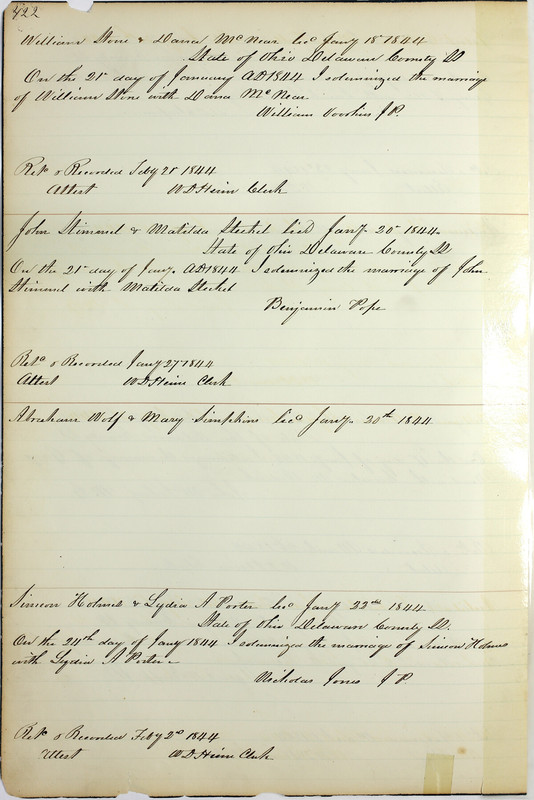 422
William Stone & Dama McNear licd Jany 18 1844
State of Ohio Delaware County SS
On the 21st day of January AD 1844 I solemnized the marriage
of William Stone with Dama McNear
William Voorhis J P.
Retd & Recorded Feby 21 1844
Attest W D Heim Clerk
John Stimmel & Matilda Steckel licd Jany 20 1844.
State of Ohio Delaware County SS
On the 21st day of Jany. AD 1844 I solemnized the marriage of John
Stimmel with Matilda Steckel
Benjamin Pope
Retd & Recorded Jany 27 1844
Attest W D Heim Clerk
Abraham Wolf & Mary Simpkins licd Jany. 20th 1844
Simeon Holmes & Lydia A Porter licd Jany 22nd 1844
State of Ohio Delaware County SS.
On the 24th day of Jany 1844 I solemnized the marriage of Simeon Holmes
with Lydia A Porter
Nicholas Jones J P
Retd & Recorded Feby 2d 1844
Attest W D Heim Clerk